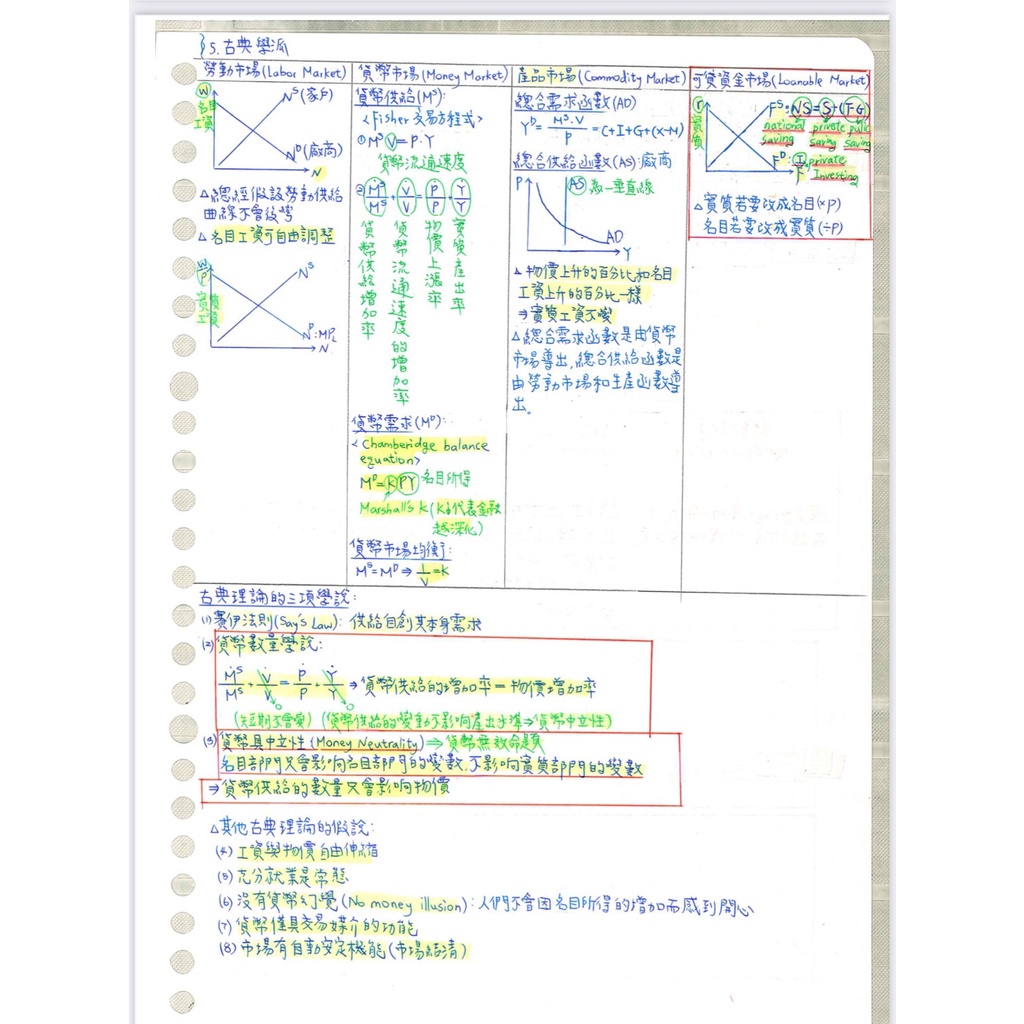 §5.古典學派
勞動市場(Labor Market)
W
名目
工資
Nˢ(家戶)
Nᴰ(廠商)
N
△總經假設勞動供給
曲線不會後彎
△名目工資可自由調整
W
P
實質
工資
Nˢ
Nᴰ:MPL
N
貨幣市場(Money Market)
貨幣供給(Mˢ):
<Fisher交易方程式>
①MˢV=P·Y
貨幣流通速度
②Ṁˢ/Mˢ+V̇/V=Ṗ/P+Ẏ/Y
貨幣供給增加率
貨幣流通速度的增加率
物價上漲率
實質產出率
貨幣需求(Mᴰ):
<Chamberidge balance
equation>
Mᴰ=KPY 名目所得
Marshall's k(K↓代表金融
越深化)
貨幣市場均衡:
Mˢ=Mᴰ⇒1/V=K
產品市場(Commodity Market)
總合需求函數(AD)
Yᴰ=Mˢ·V/P=C+I+G+(X-M)
總合供給函數(AS):廠商
P
AS 為一垂直線
AD
Y
△物價上升的百分比和名目
工資上升的百分比一樣
⇒實質工資不變
△總合需求函數是由貨幣
市場導出,總合供給函數是
由勞動市場和生產函數導
出.
可貸資金市場(Loanable Market)
r
實質
Fˢ:NS=S+(T-G)
national private pulic
saving saving saving
Fᴰ:I private
F Investing
△實質若要改成名目(×P)
名目若要改成實質(÷P)
古典理論的三項學說:
(1)賽伊法則(Say's Law): 供給自創其本身需求
(2)貨幣數量學說:
Ṁˢ/Mˢ+V̇/V=Ṗ/P+Ẏ/Y⇒貨幣供給的增加率=物價增加率
0 0
(短期不會變) (貨幣供給的變動不影响產出水準⇒貨幣中立性)
(3)貨幣具中立性(Money Neutrality)⇒貨幣無效命題
名目部門只會影响名目部門的變數,不影响實質部門的變數
⇒貨幣供給的數量只會影响物價
△其他古典理論的假說:
(4)工資與物價自由伸縮
(5)充分就業是常態
(6)沒有貨幣幻覺(No money illusion):人們不會因名目所得的增加而感到開心
(7)貨幣僅具交易媒介的功能
(8)市場有自動安定機能(市場結清)